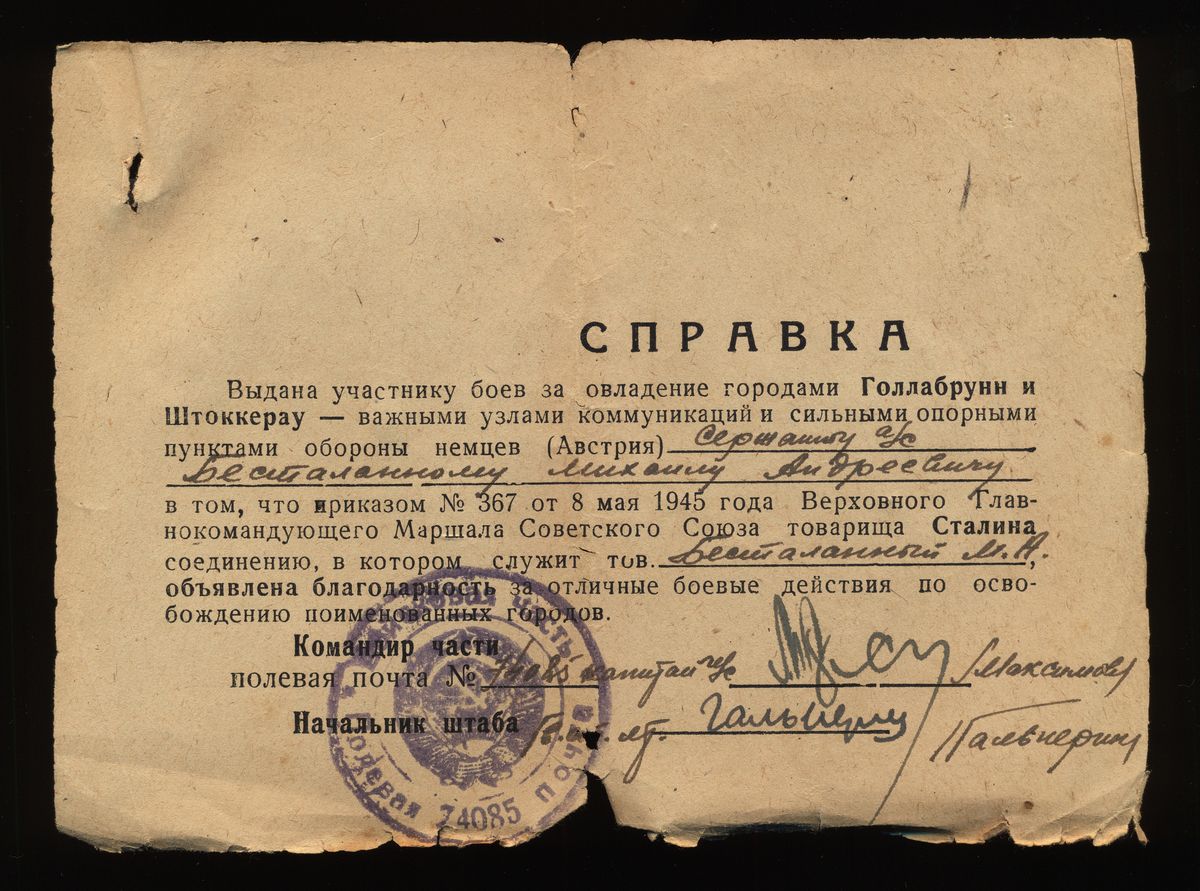 СПРАВКА
Выдана участнику боев за овладение городами Голлабрунн и
Штоккерау — важными узлами коммуникаций и сильными опорными
пунктами обороны немцев (Австрия) Сержанту а/с
Бесталанному Михаилу Андреевичу
в том, что приказом № 367 от 8 мая 1945 года Верховного Глав-
нокомандующего Маршала Советского Союза товарища Сталина
соединению, в котором служит тов. Бесталанный М.А.,
объявлена благодарность за отличные боевые действия по осво-
бождению поименованных городов.
Командир части
полевая почта № 74085 капитан /Максимов/
Начальник штаба Гальперин /Гальперин/
Войсковая часть
Полевая почта 74085